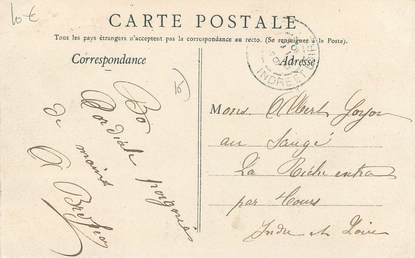 10€
CARTE POSTALE
Tous les pays étrangers n'acceptent pas la correspondance au recto. (Se renseigner à la Poste).
Correspondance
Adresse
INDRE ET
Bo
Cordiale poignée
de mains
A
Mons. Albert
au
La Riche extra
par Tours
Indre et Loire